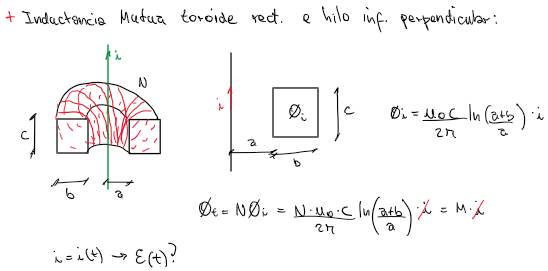 + Inductancia Mutua toroide rect. e hilo inf. perpendicular:
i
N
c
b
a
i
a
b
c
Øᵢ
Øᵢ = μ₀c/2π ln((a+b)/a) · i
Øₜ = NØᵢ = N·μ₀·c/2π ln((a+b)/a) · i = M · i
i = i(t) → ε(t)?